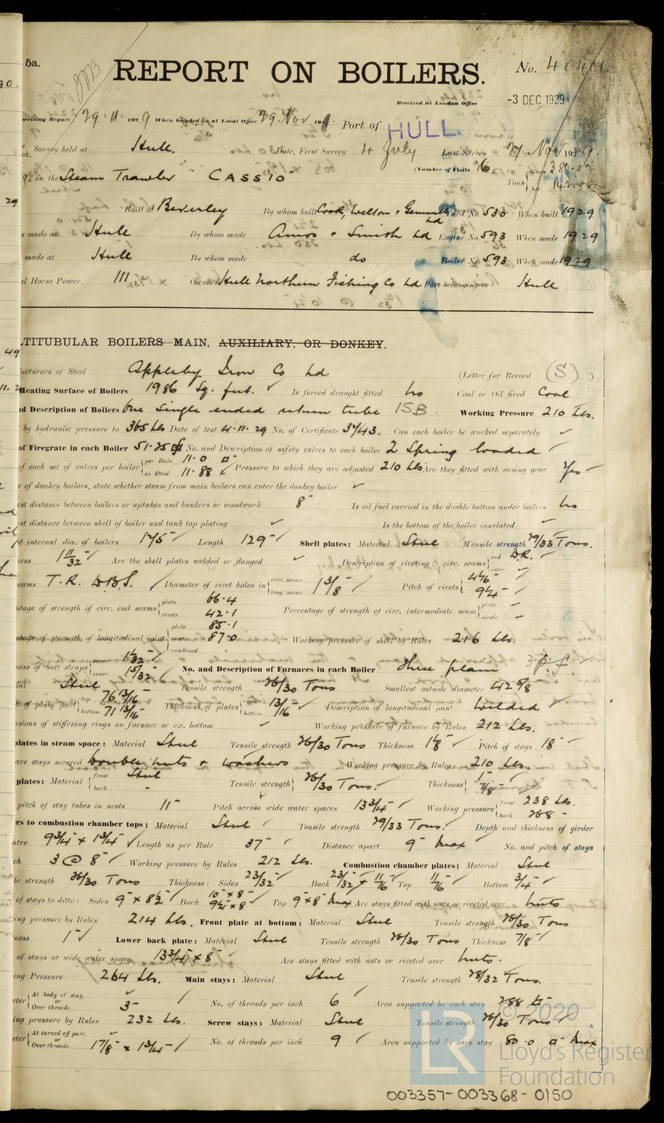 5a.
REPORT ON BOILERS.
No. 40404
Received at London Office
-3 DEC 1929
writing Report 29.11.1929 When handed in at Local Office 29 Nov. 19 Port of HULL
Survey held at Hull. Date, First Survey 4 July Last Survey 27 Nov 1929
(Number of Visits 76
on the Steam Trawler "CASSIO" Tons
Built at Beverley By whom built Cook, Welton & Gemmell Ld Yard No. 533 When built 1929
made at Hull By whom made Amos & Smith Ld Engine No. 593 When made 1929
made at Hull By whom made do Boiler No. 593 When made 1929
Horse Power 111 Owners Hull Northern Fishing Co Ld Port belonging to Hull
LTITUBULAR BOILERS MAIN, AUXILIARY, OR DONKEY.
facturers of Steel Appleby Iron Co Ld (Letter for Record (S)
Heating Surface of Boilers 1986 Sq. feet. Is forced draught fitted No Coal or Oil fired Coal
Description of Boilers One Single ended return tube 1SB Working Pressure 210 Lbs.
by hydraulic pressure to 365 Lbs Date of test 4.11.29 No. of Certificate 3743. Can each boiler be worked separately ✓
of Firegrate in each Boiler 51.25 No. and Description of safety valves to each boiler 2 Spring loaded
of each set of valves per boiler {per Rule 11.0 as fitted 11.88 Pressure to which they are adjusted 210 Lbs. Are they fitted with easing gear Yes
of donkey boilers, state whether steam from main boilers can enter the donkey boiler ✓
est distance between boilers or uptakes and bunkers or woodwork 8" Is oil fuel carried in the double bottom under boilers No
st distance between shell of boiler and tank top plating ✓ Is the bottom of the boiler insulated ✓
st internal dia. of boilers 175" Length 129" Shell plates: Material Steel Tensile strength 29/33 Tons.
ness 1 11/32" Are the shell plates welded or flanged ✓ Description of riveting: circ. seams {end DR. inter. ✓
seams T.R. D.B.S. Diameter of rivet holes in {circ. seams long. seams 1 3/8" Pitch of rivets {
ntage of strength of circ. end seams {plate 66.4 rivets 42.1 Percentage of strength of circ. intermediate seam {plate ✓ rivets ✓
ntage of strength of longitudinal joint {plate 85.1 rivets 87.0 combined Working pressure of shell by Rules 216 Lbs.
ness of butt straps No. and Description of Furnaces in each Boiler Three plain
Steel Tensile strength 26/30 Tons Smallest outside diameter 42 5/8"
of plain part {top 76 13/16" bottom 71 13/16" Thickness of plates { bottom 13/16" Description of longitudinal joint Welded
sions of stiffening rings on furnace or c.c. bottom Working pressure of furnace by Rules 212 Lbs.
plates in steam space: Material Steel Tensile strength 26/30 Tons Thickness 1 1/8" Pitch of stays 18"
are stays secured Double nuts & washers Working pressure by Rules 210 Lbs.
plates: Material {front Steel back " Tensile strength { 26/30 Tons. Thickness { 1" 7/8"
pitch of stay tubes in nests 11" Pitch across wide water spaces 13 3/4" Working pressure {front 238 Lbs. back 268 "
rs to combustion chamber tops: Material Steel Tensile strength 29/33 Tons. Depth and thickness of girder
ntre 9 3/4" x 1 3/4" Length as per Rule 37" Distance apart 9" max No. and pitch of stays
ch 3 @ 8" Working pressure by Rules 212 Lbs. Combustion chamber plates: Material Steel
le strength 26/30 Tons Thickness: Sides 23/32" Back 23/32" & 11/16" Top 11/16" Bottom 3/4"
of stays to ditto: Sides 9" x 8 1/2" Back Top 9" x 8" max Are stays fitted with nuts or riveted over nuts
ing pressure by Rules 214 Lbs. Front plate at bottom: Material Steel Tensile strength 26/30 Tons
ness 1" Lower back plate: Material Steel Tensile strength 26/30 Tons Thickness 7/8"
of stays at wide water space 13 3/4" x 8" Are stays fitted with nuts or riveted over nuts.
ing Pressure 264 Lbs. Main stays: Material Steel Tensile strength 28/32 Tons.
eter {At body of stay, or Over threads. 3" No. of threads per inch 6 Area supported by each stay 288
ing pressure by Rules 232 Lbs. Screw stays: Material Steel Tensile strength 26/30 Tons
eter {At turned off part, or Over threads. 1 7/8" & 1 3/4" No. of threads per inch 9 Area supported by each stay 80.0 max
© 2020
LR
Lloyd's Register
Foundation
003357-003368-0150